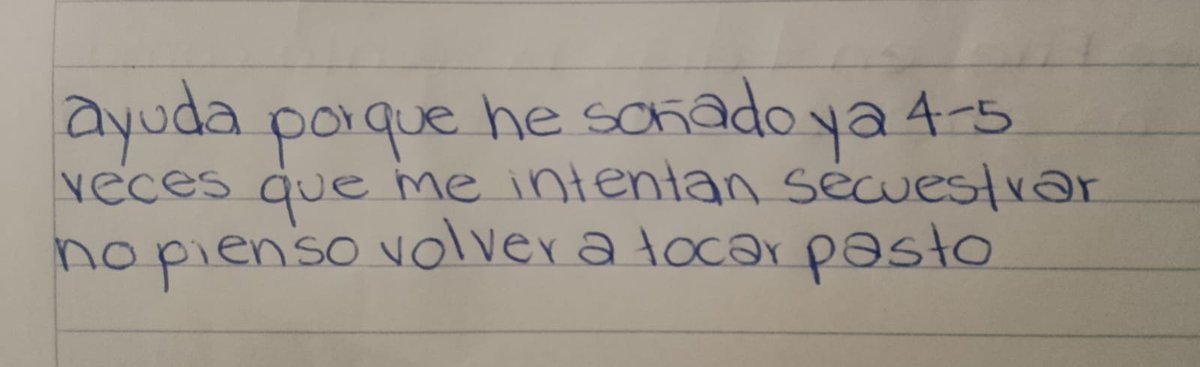 ayuda porque he soñado ya 4-5
veces que me intentan secuestrar
no pienso volver a tocar pasto